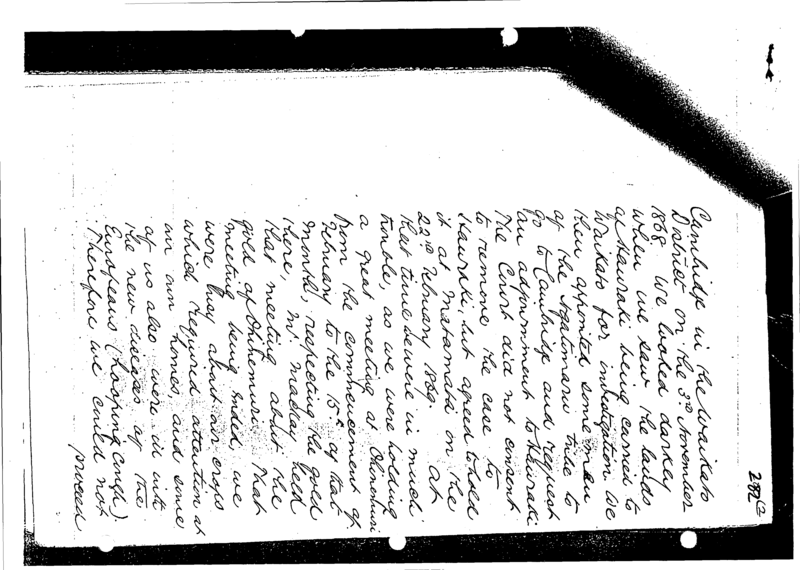 282
Cambridge in the Waikato
District on the 3rd November
1868 we looked darkly
when we saw the lands
of Hauraki being carried to
Waikato for investigation. We
then appointed some men
of the Ngatimaru tribe to
go to Cambridge and request
an adjournment to Hauraki
The Court did not consent
to remove the case to
Hauraki, but agreed to hold
it at Matamata on the
22nd February 1869. At
that time we were in much
trouble, as we were holding
a great meeting at Ohinemuri
from the commencement of
February to the 15th of that
month, respecting the gold
there, Mr. Mackay held
that meeting about the
gold of Ohinemuri. That
meeting being ended we
were busy about our crops
which required attention at
our own homes, and some
of us also were ill with
the new diseases of the
Europeans (hooping cough)
Therefore we could not
proceed